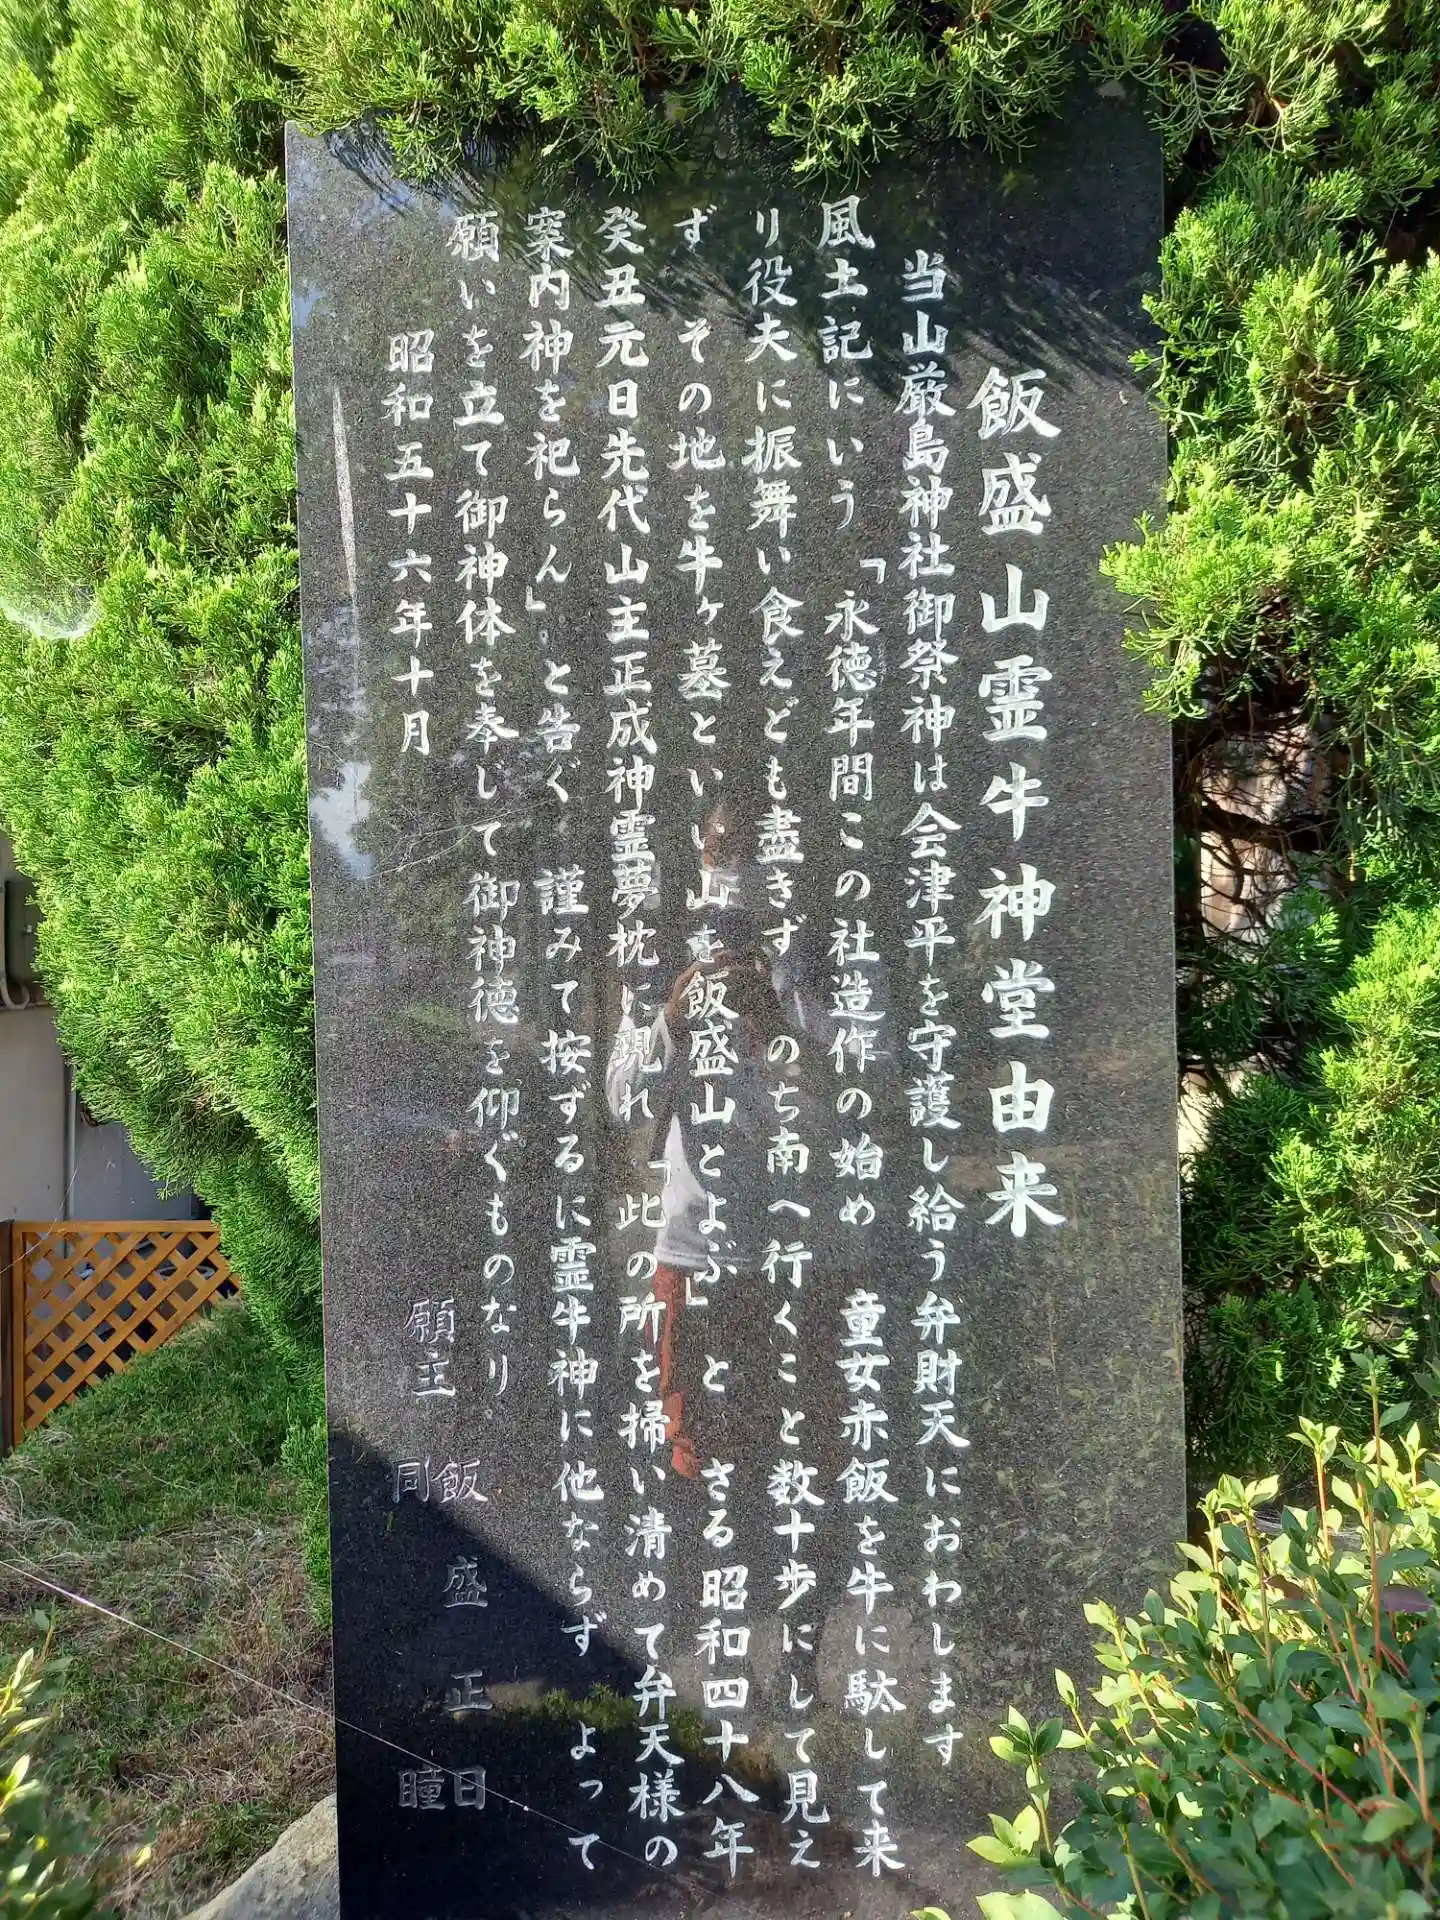 飯盛山霊牛神堂由来
当山厳島神社御祭神は会津平を守護し給う弁財天におわします
風土記にいう「永徳年間この社造作の始め 童女赤飯を牛に駄して来
り役夫に振舞い食えども盡きず のち南へ行くこと数十歩にして見え
ず その地を牛ヶ墓といい山を飯盛山とよぶ」と さる昭和四十八年
癸丑元日先代山主正成神霊夢枕に現れ「此の所を掃い清めて弁天様の
案内神を祀らん」と告ぐ 謹みて按ずるに霊牛神に他ならず よって
願いを立て御神体を奉じて御神徳を仰ぐものなり
昭和五十六年十月
願主 飯盛正日
同 瞳